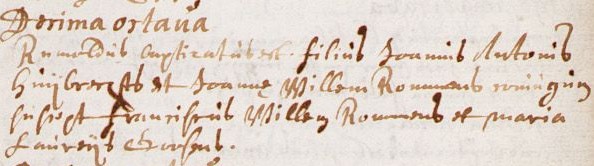 Decima octava
Rumoldus baptizatus est filius Joannis Antonis
Huijbrechts et Joanne Willem Rommens coniugum
suscept Franciscus Willem Rommens et Maria
Laureijs